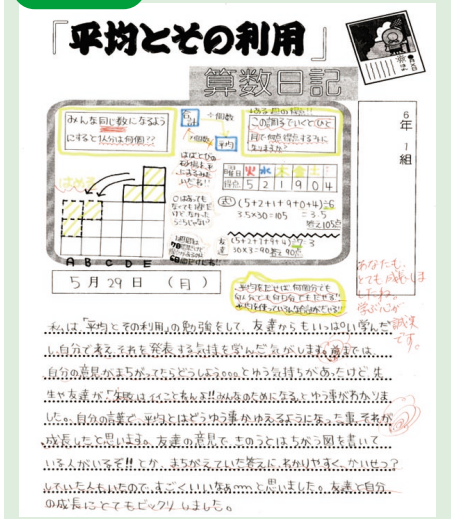 「平均とその利用」
算数日記
6年1組
みんな同じ数になるよう
にすると1人分は何個??
個数
平均
この調子でいくとひと
月で何点得点することに
なりますか?
はばとびの
ならせる
曜日 火 水 木 金 土
得点 5 2 1 9 0 4
(5+2+1+9+0+4)÷6
=3.5
3.5×30=105
答え105点
(5+2+1+9+4)÷7=3
30×3=90 答え90点
A B C D E
5月29日(月)
あなたも、
とても成長しま
したね。
学ぶ心が
誠実
です。
私は「平均とその利用」の勉強をして、友達からもいっぱい学んだ
し、自分で考え、それを発表する気持を学んだ気がします。前までは、
自分の意見がまちがってたらどうしよう。。。とゆう気持ちがあったけど、先
生や友達が、「失敗はイイことなんよ!!みんなのためになる」とゆう事がわかりま
した。自分の言葉で、平均とはどうゆう事かゆえるようになった事、それが
成長したと思います。友達の意見で、きのうとはちがう図を書いて
いる人がいるぞ!!とか、まちがえていた答えに、わかりやすく、かいせつ?
していた人もいたので、すごくいいなぁと思いました。友達と自分
の成長にとてもビックリしました。